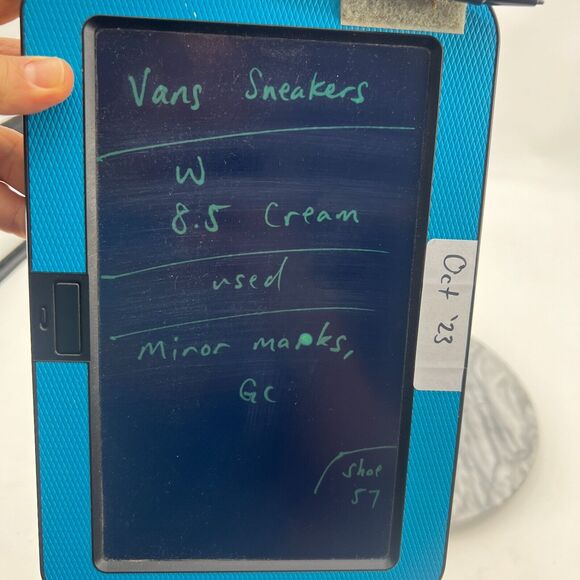 Vans Sneakers
W
8.5 Cream
used
Minor marks,
GC
Shoe
57
Oct '23